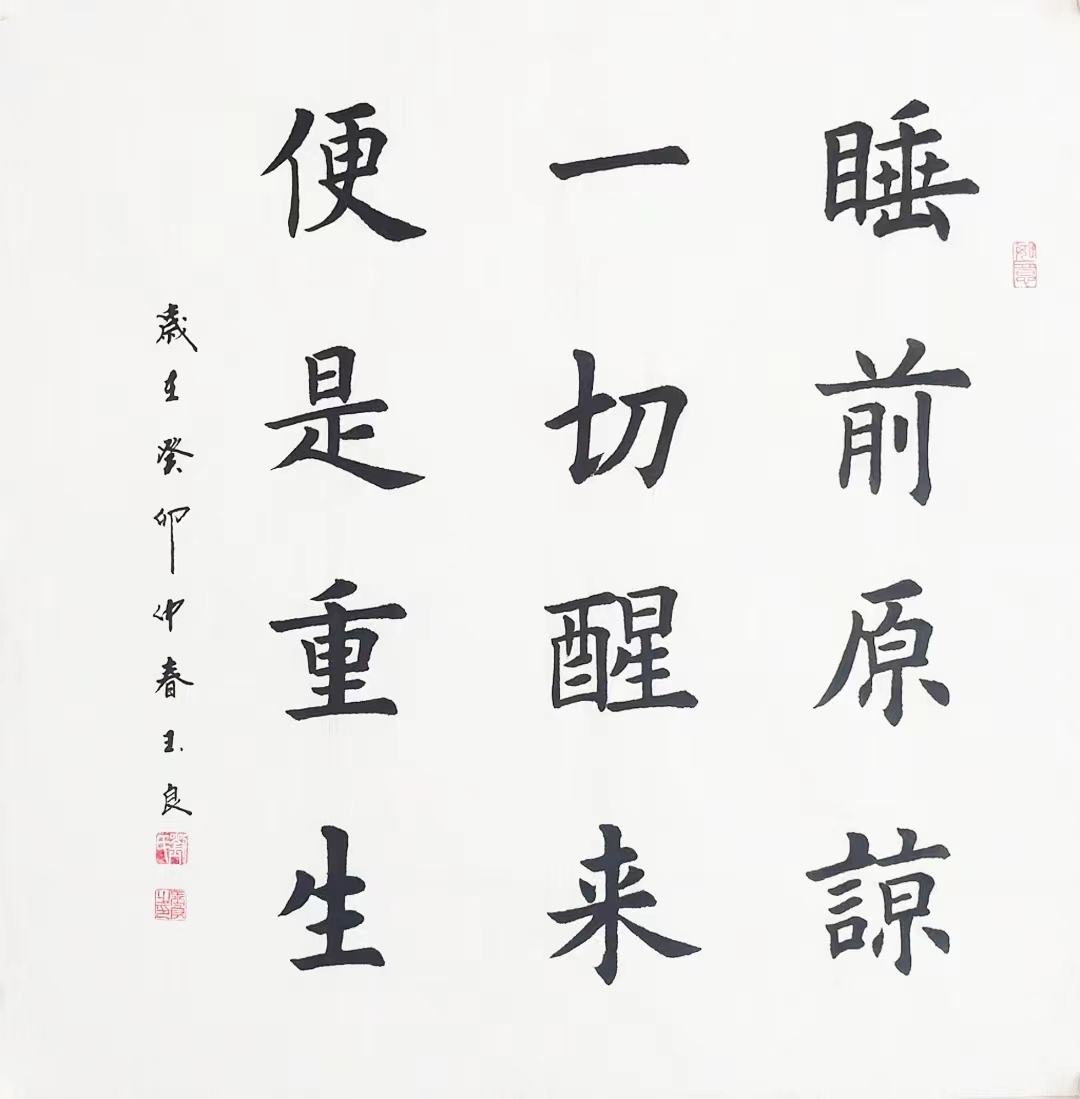 睡前原諒
一切醒来
便是重生
歲在癸卯仲春玉良